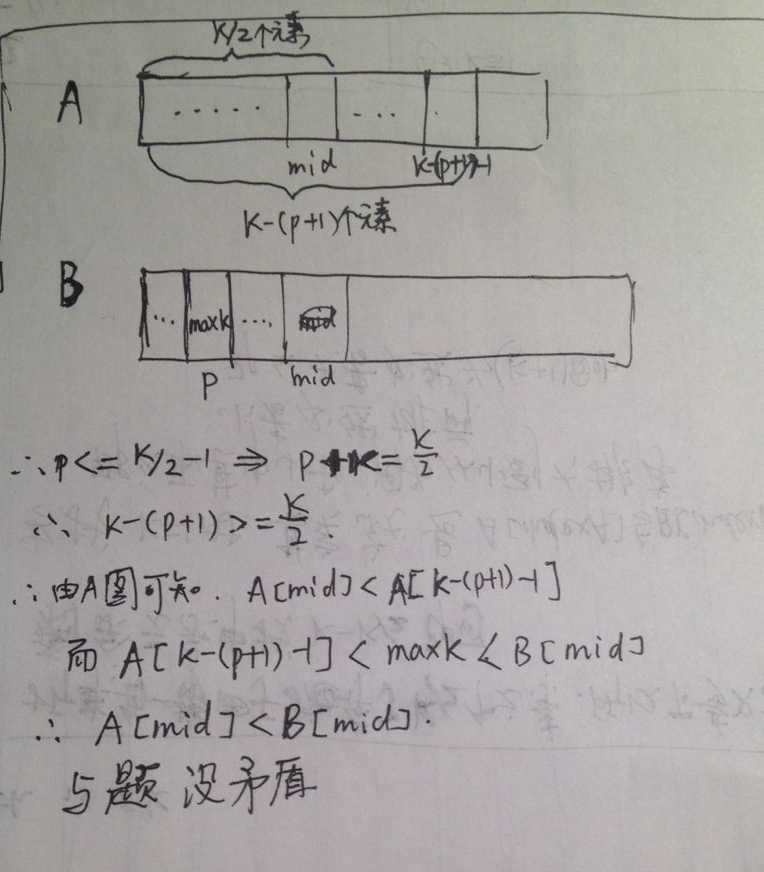 K/2个元素
A
..... ...
mid K-(p+1)-1
K-(p+1)个元素
B
... maxk .... mid
p mid
∴ p <= K/2-1 ⇒ p+1<= K/2
∴ K-(p+1) >= K/2.
∴ 由A图可知. A[mid] < A[K-(p+1)-1]
而 A[K-(p+1)-1] < maxK < B[mid]
∴ A[mid] < B[mid].
与题 没矛盾